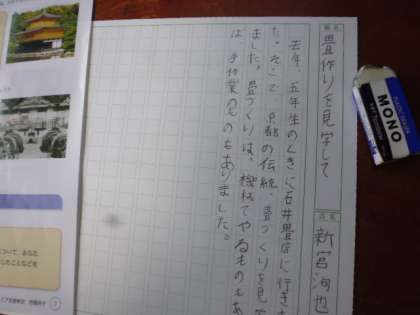 題名
畳作りを見学して
氏名
新宮洵也
去年、五年生のときに石井畳店に行きま
た。そこで、京都の伝統、畳づくりを見学
ました。畳づくりは、機械でやるものもあ
ば、手作業のものもありました。
MONO
について、あなた
したことなどを